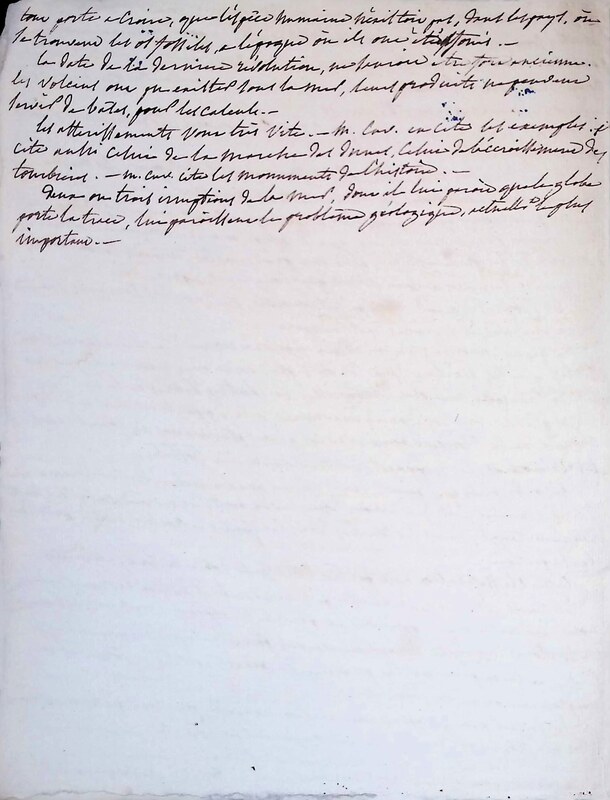 tout porte a croire, que l'espèce humaine n'existoit pas, dans les pays, où
se trouvent les os fossiles, a l'époque où ils ont été enfouis. —
la date de la dernière révolution, ne paroit être fort ancienne.
les volcans ont pu exister sous la mer, leurs produits ne peuvent
servir de bases, pour les calculs. —
les atterrissements vont très vite. — m. Cuv. en cite des exemples. il
cite aussi celui de la marche des dunes, celui de l'accroissement des
tourbières. — m. cuv. cite les monuments de l'histoire. —
Deux ou trois irruptions de la mer, dont il lui paroit que le globe
porte la trace, lui paroissent le problème géologique, actuellt le plus
important. —